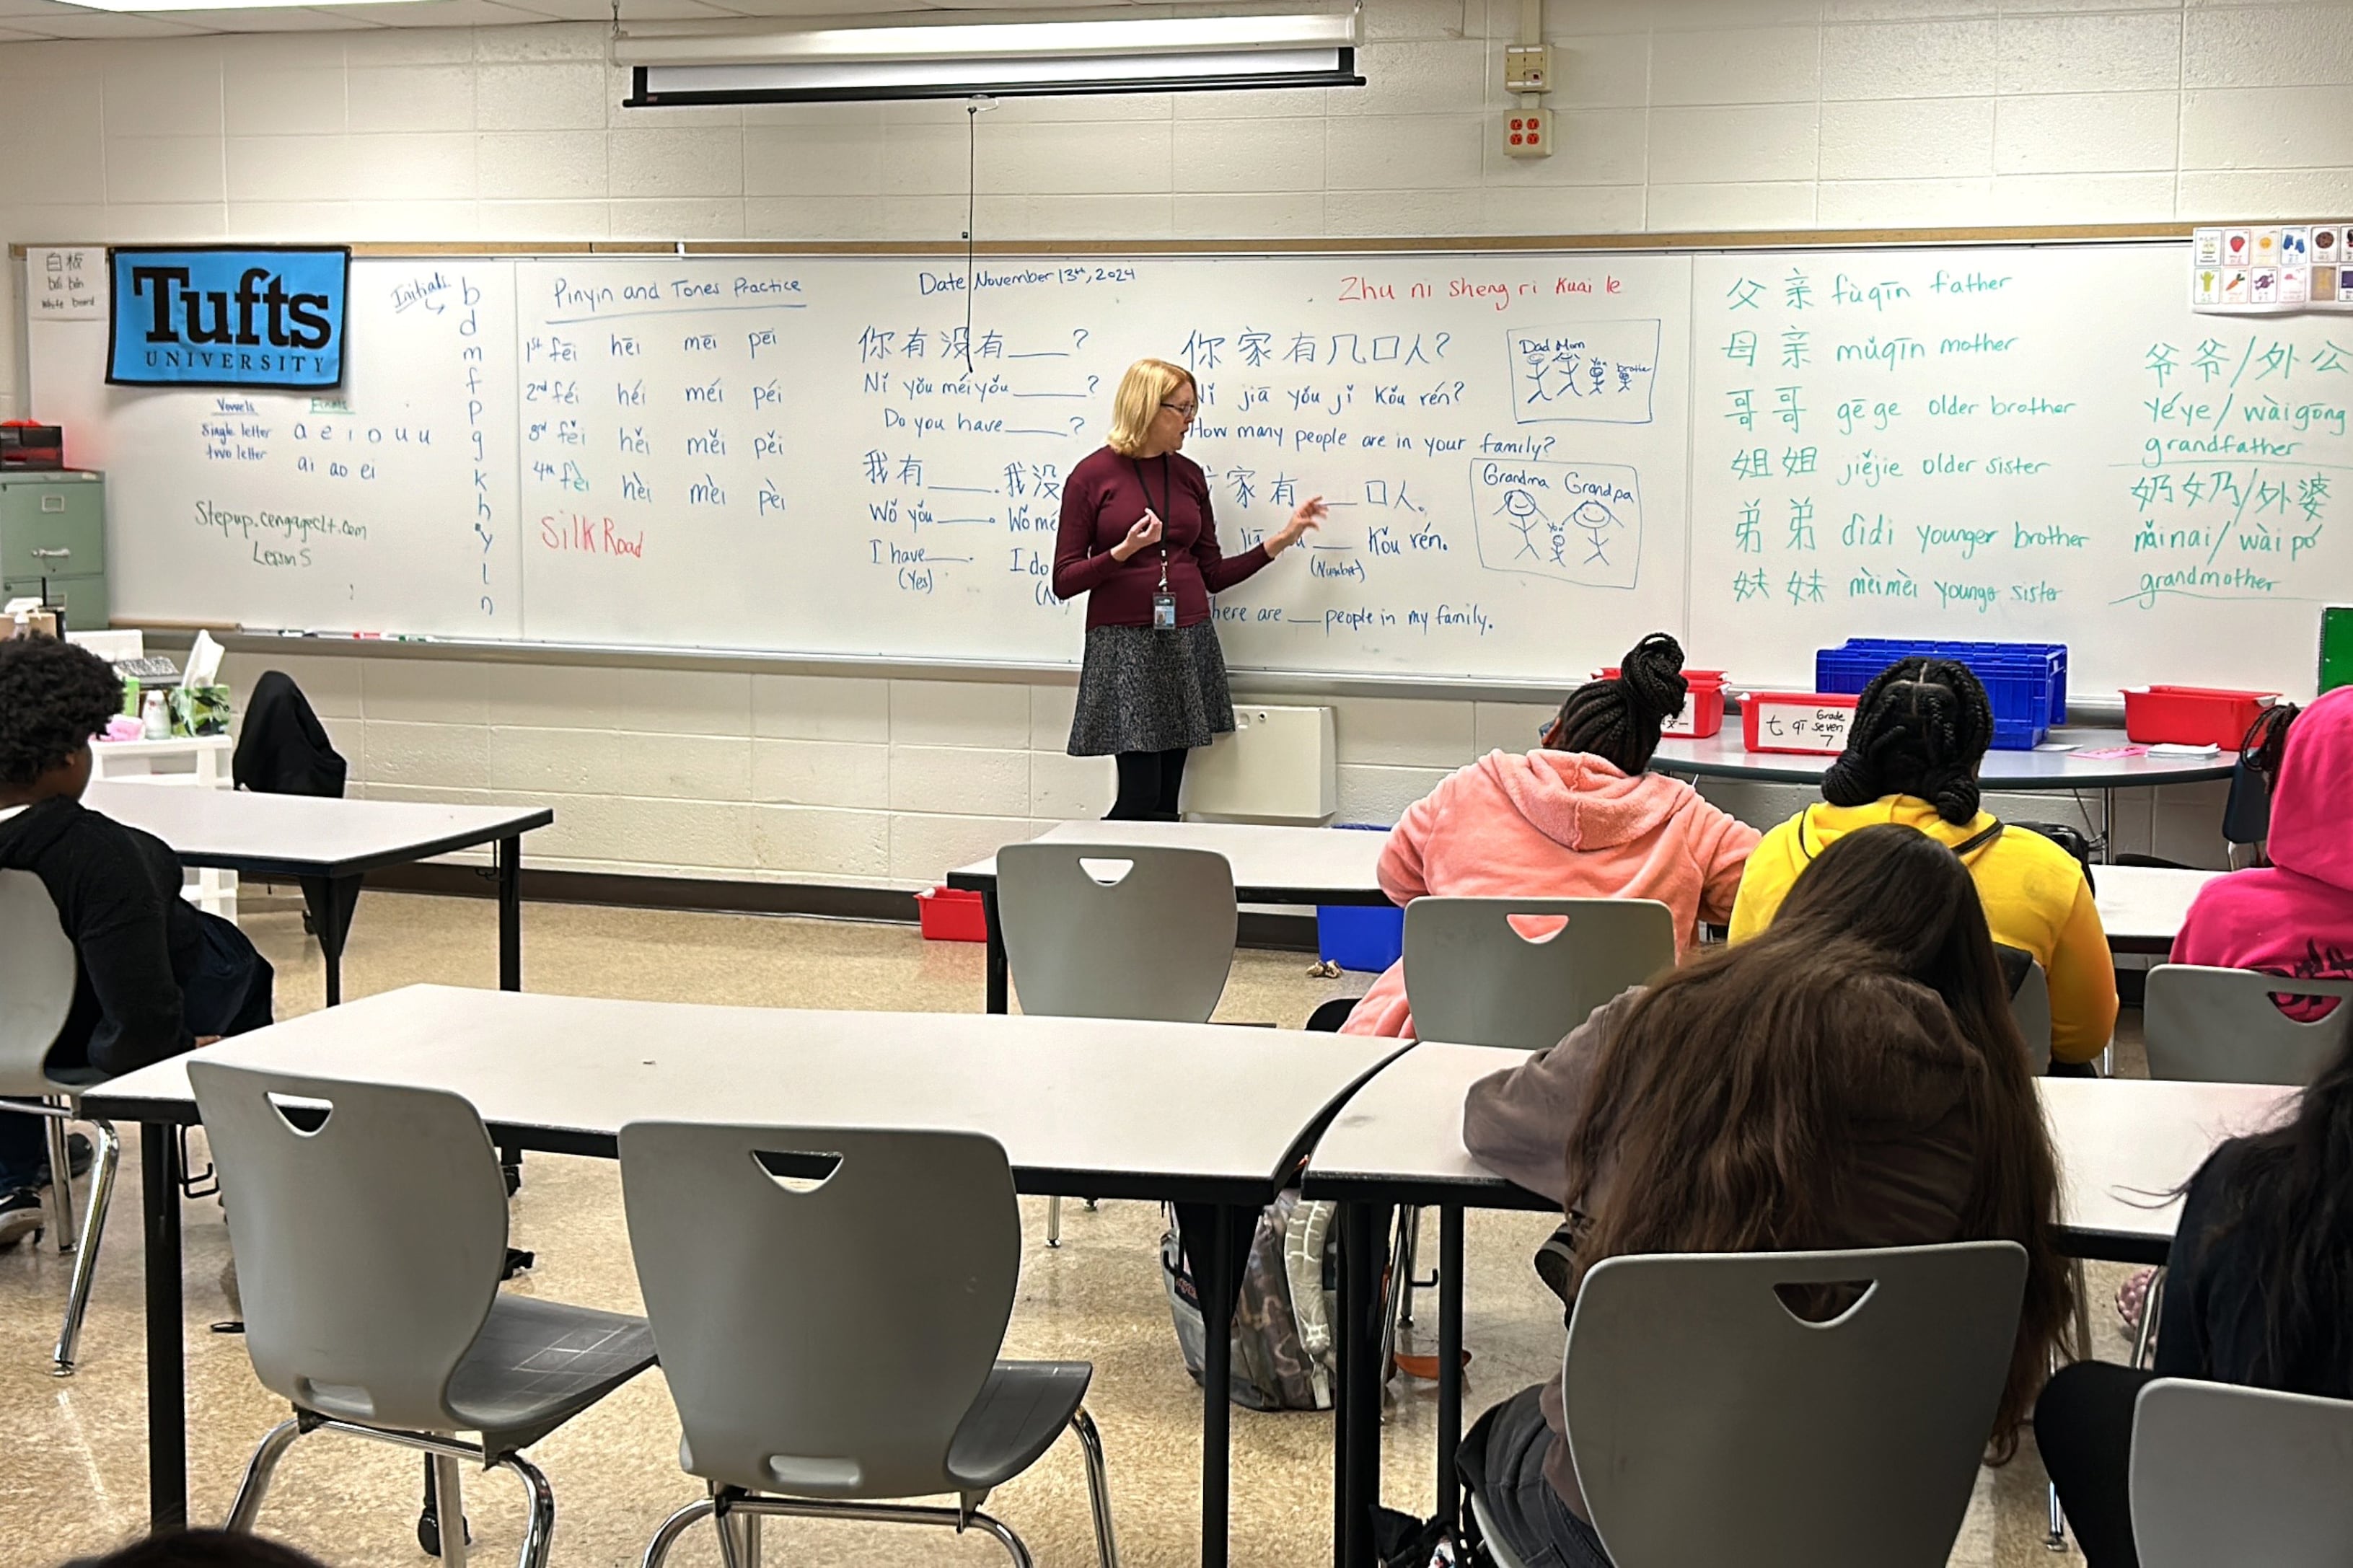 白板
bái bǎn
White board
Tufts
UNIVERSITY
Initials
b
d
m
f
p
g
k
h
y
l
n
Vowels Finals
Single letter a e i o u u
two letter ai ao ei
Stepup.cengageclt.com
Lesson 5
Pinyin and Tones Practice
1st fēi hēi mēi pēi
2nd féi héi méi péi
3rd fěi hěi měi pěi
4th fèi hèi mèi pèi
Silk Road
Date November 13th, 2024
你有没有____?
Nǐ yǒu méiyǒu____?
Do you have____?
我有____. 我没
Wǒ yǒu____. Wǒ mé
I have____. I do
(Yes) (N
Zhu ni sheng ri kuai le
你家有几口人?
Nǐ jiā yǒu jǐ kǒu rén?
How many people are in your family?
家有___口人.
jiā ___ kǒu rén.
(Number)
here are ___ people in my family.
Dad Mom
You brother
Grandma Grandpa
You
父亲 fùqīn father
母亲 mǔqīn mother
哥哥 gēge older brother
姐姐 jiějie older sister
弟弟 dìdi younger brother
妹妹 mèimèi younger sister
爷爷/外公
yéye/wàigōng
grandfather
奶奶/外婆
nǎinai/wàipó
grandmother
七 qī Grade
seven
7